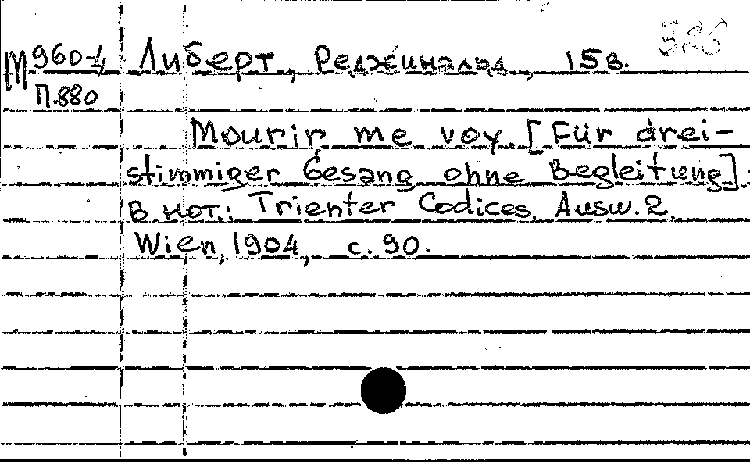 М 960-1 Либерт, Реджинальд, 15в.
П.880
Mourir me voy. [Für drei-
stimmiger Gesang ohne Begleitung].
В нот.: Trienter Codices. Ausw. 2.
Wien, 1904, с. 90.